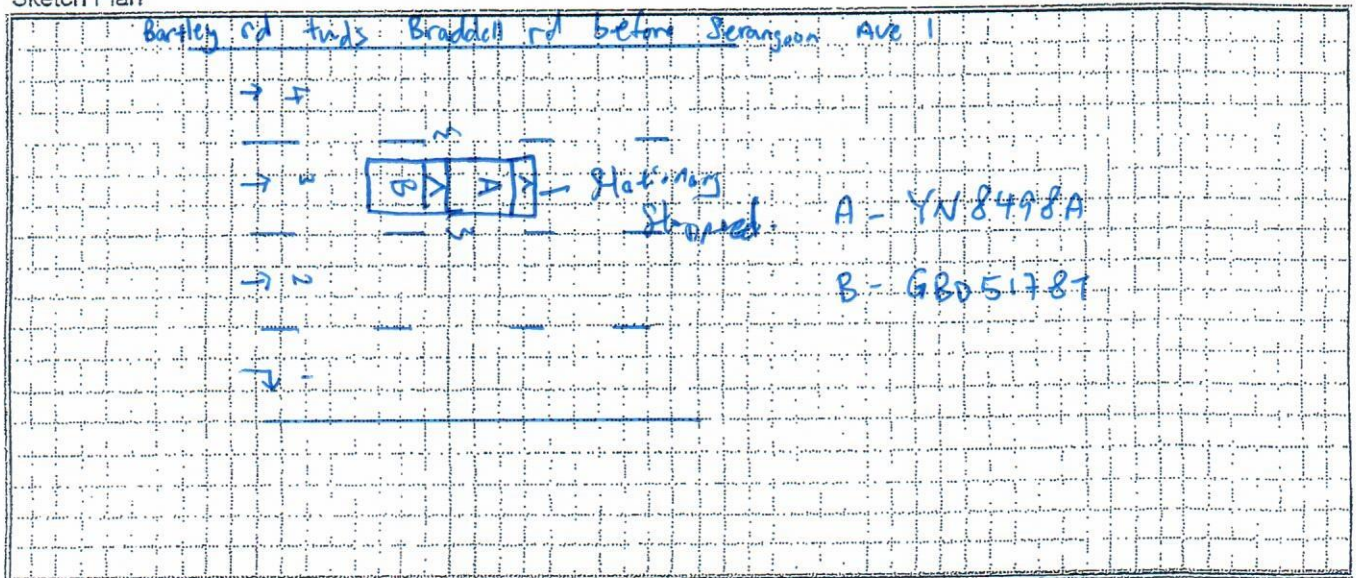 Sketch Plan
Bartley rd twds Braddell rd before Serangoon Ave 1
4
3
B A Stationary
Stopped.
A - YN8498A
2
B - GBD5178T
1